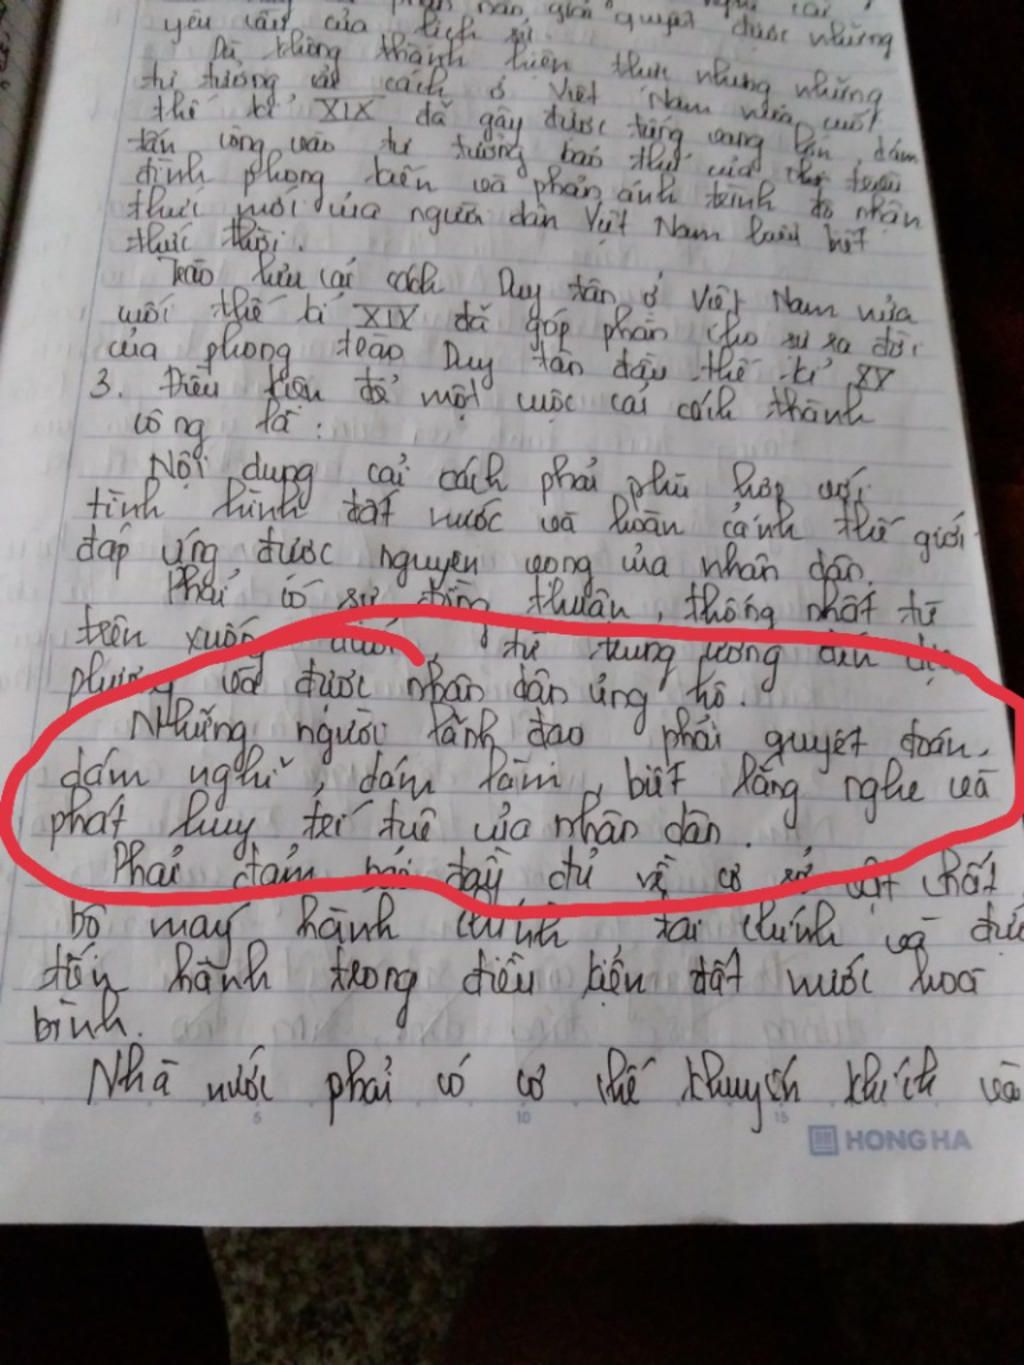 yêu cầu của lịch sử.
Dù không thành hiện thực nhưng những
tư tưởng cải cách ở Việt Nam nửa cuối
thế kỉ XIX đã gây được tiếng vang lớn, dám
tấn công vào tư tưởng bảo thủ của triều
đình phong kiến và phản ánh trình độ nhận
thức mới của người dân Việt Nam hiểu biết
thức thời.
Trào lưu cải cách Duy tân ở Việt Nam nửa
cuối thế kỉ XIX đã góp phần cho sự ra đời
của phong trào Duy tân đầu thế kỉ XX
3. Điều kiện để một cuộc cải cách thành
công là:
Nội dung cải cách phải phù hợp với
tình hình đất nước và hoàn cảnh thế giới
đáp ứng được nguyện vọng của nhân dân.
Phải có sự đồng thuận, thống nhất từ
trên xuống dưới, từ trung ương đến địa
phương và được nhân dân ủng hộ.
Những người lãnh đạo phải quyết đoán,
dám nghĩ, dám làm, biết lắng nghe và
phát huy trí tuệ của nhân dân.
Phải đảm bảo đầy đủ về cơ sở vật chất
bộ máy hành chính tài chính và
tiến hành trong điều kiện đất nước hoà
bình.
Nhà nước phải có cơ chế khuyến khích và
5 10 15
HONG HA